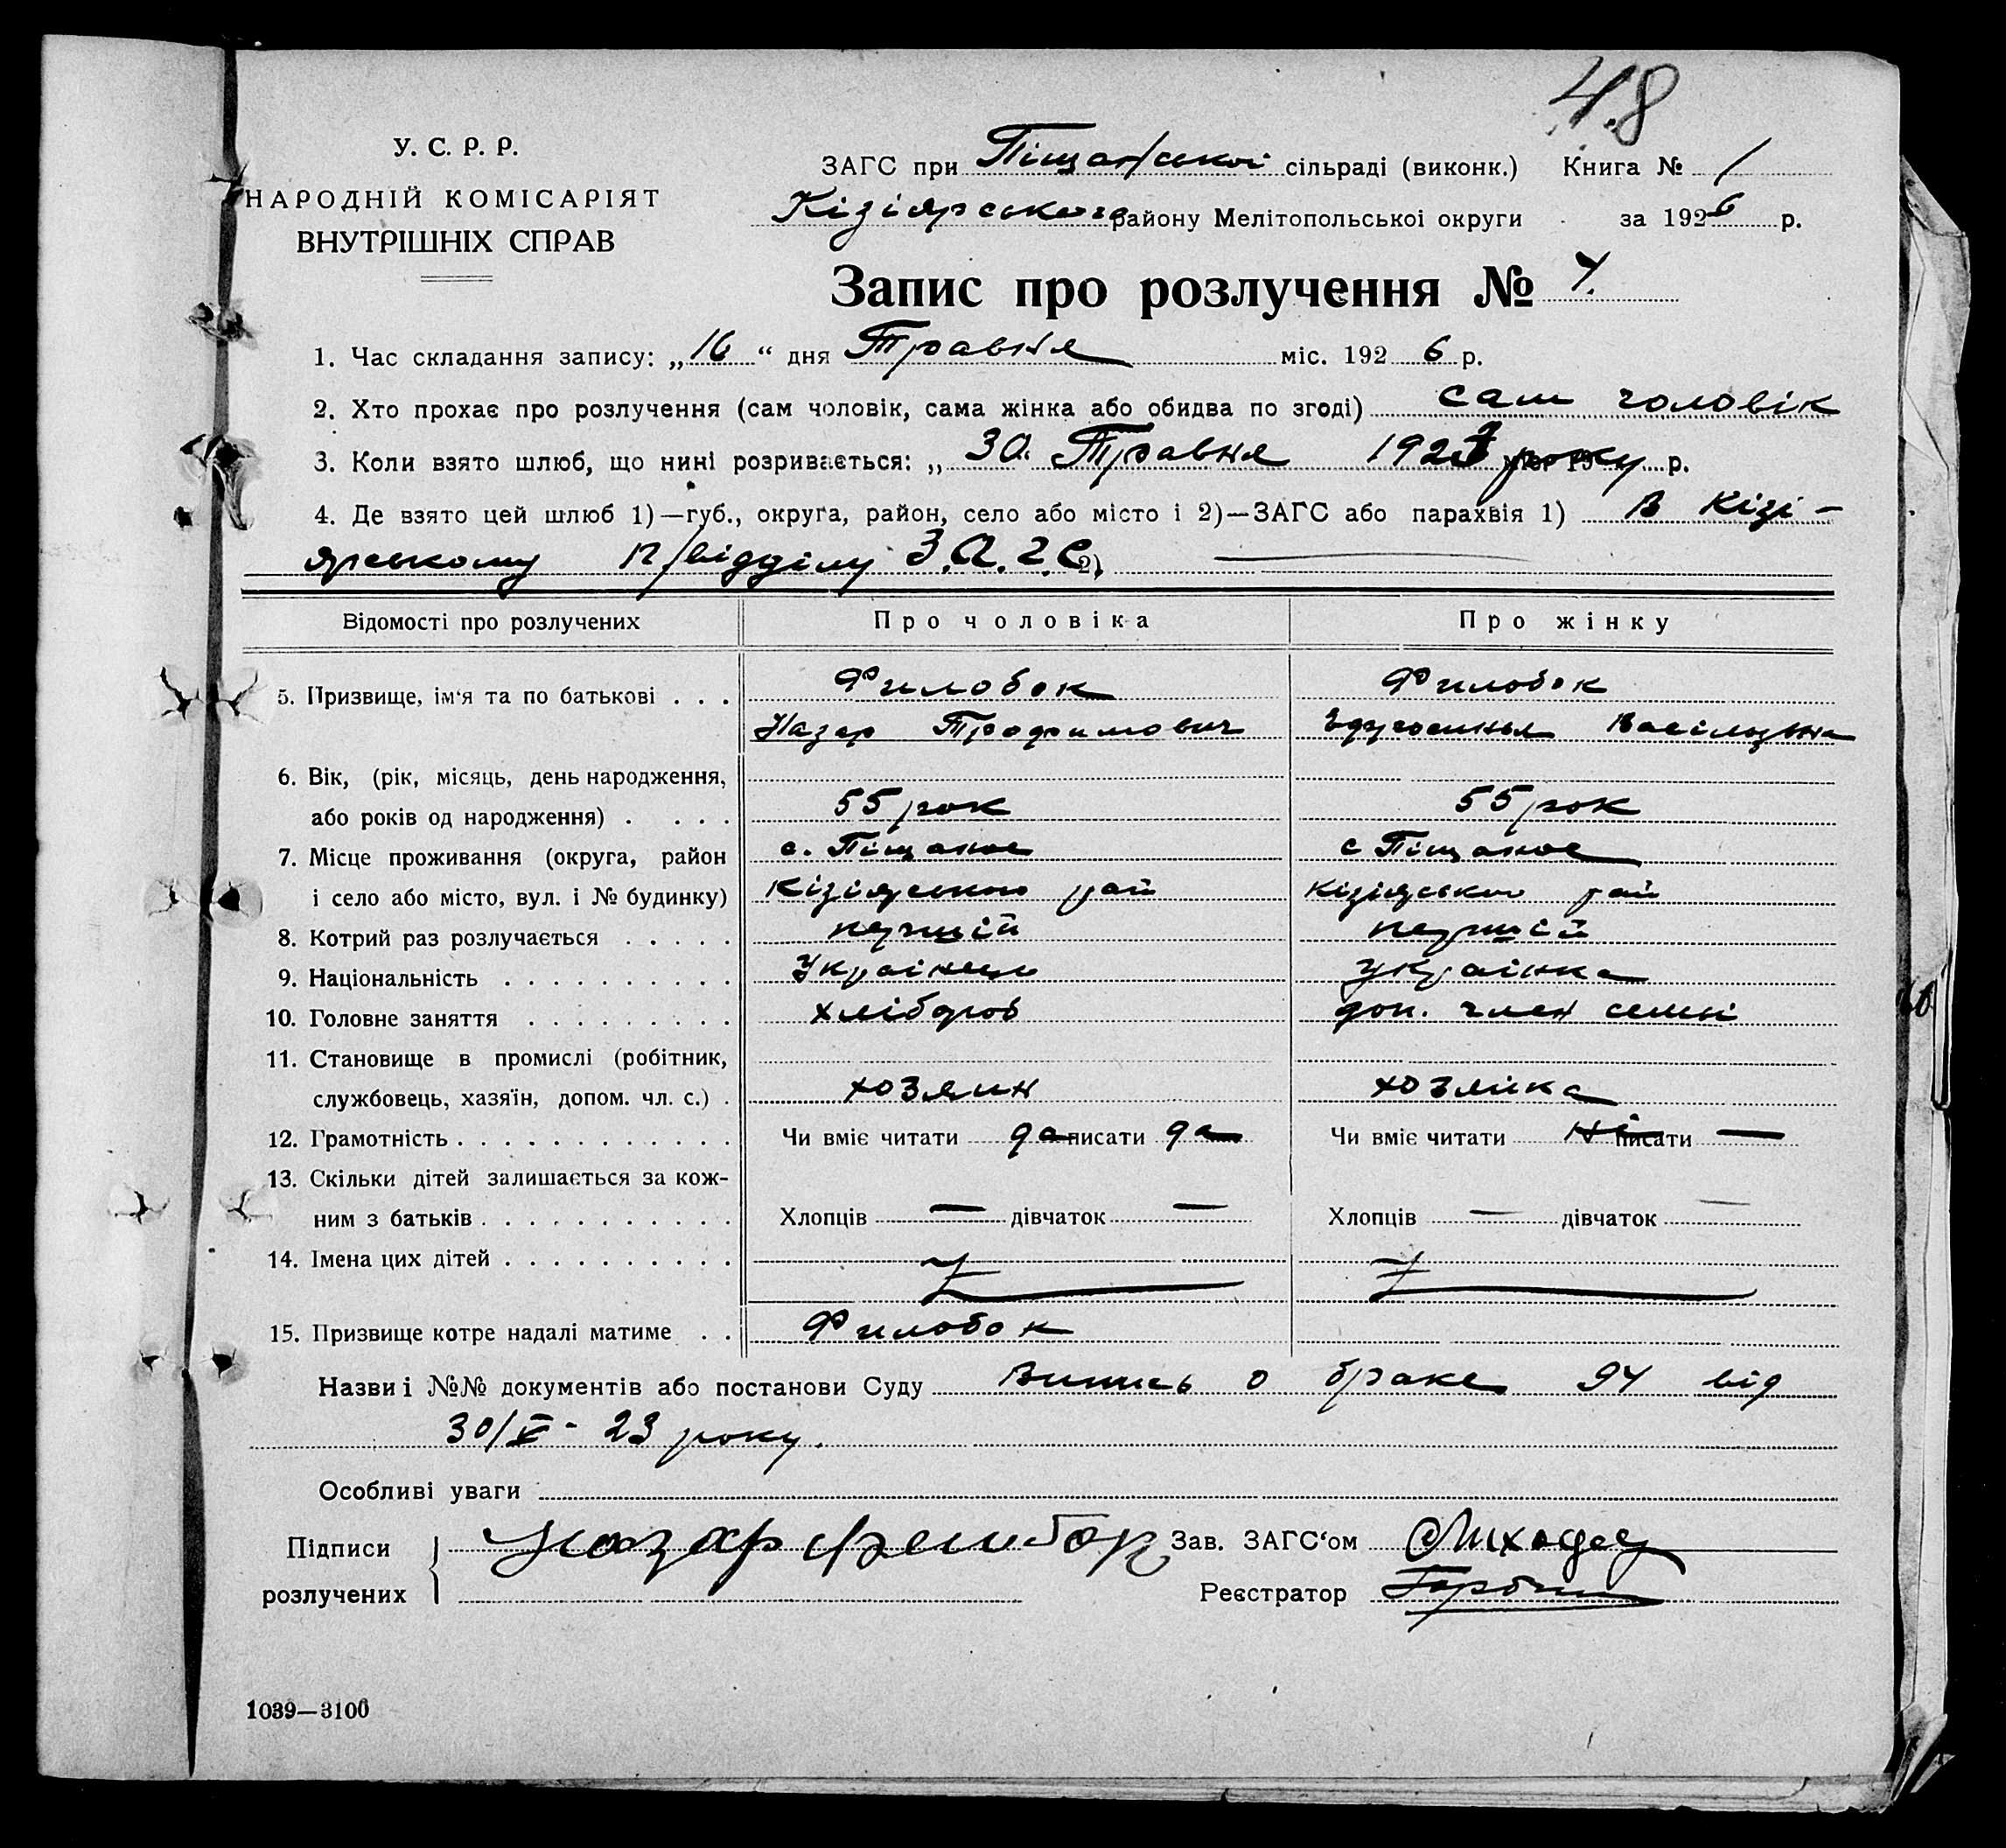 48
У. С. Р. Р.
НАРОДНІЙ КОМІСАРІЯТ
ВНУТРІШНІХ СПРАВ
ЗАГС при Піщанської сільраді (виконк.) Книга № 1
Кізіярського району Мелітопольської округи за 1926 р.
Запис про розлучення №
1. Час складання запису: „16“ дня Травня міс. 1926 р.
2. Хто прохає про розлучення (сам чоловік, сама жінка або обидва по згоді) сам чоловік
3. Коли взято шлюб, що нині розривається: „ 30. Травня 1923 року р.
4. Де взято цей шлюб 1)—губ., округа, район, село або місто і 2)—ЗАГС або парахвія 1) в Кізі-
ярському п/відділу З.А.Г.С. 2)
Відомості про розлучених Про чоловіка Про жінку
5. Призвище, ім'я та по батькові . . . Филобок Филобок
Назар Трофимович Васілівна
6. Вік, (рік, місяць, день народження,
або років од народження) . . . . 55 рок 55 рок
7. Місце проживання (округа, район с. Піщаное с Піщаное
і село або місто, вул. і № будинку) Кізіярського рай Кізіярського рай
8. Котрий раз розлучається . . . . . перший перший
9. Національність . . . . . . . . . . Українець українка
10. Головне заняття . . . . . . . . . хлібороб доп. член семьі
11. Становище в промислі (робітник,
службовець, хазяїн, допом. чл. с.) . хозяин хозяйка
12. Грамотність . . . . . . . . . . . . Чи вміє читати да писати да Чи вміє читати ні писати —
13. Скільки дітей залишається за кож-
ним з батьків . . . . . . . . . . . Хлопців — дівчаток — Хлопців — дівчаток —
14. Імена цих дітей . . . . . . . . . .
15. Призвище котре надалі матиме . . Филобок
Назви і №№ документів або постанови Суду Випись о браке 94 від
30/V - 23 року.
Особливі уваги
Підписи розлучених Назар Зав. ЗАГС'ом
Реєстратор
1039—3100